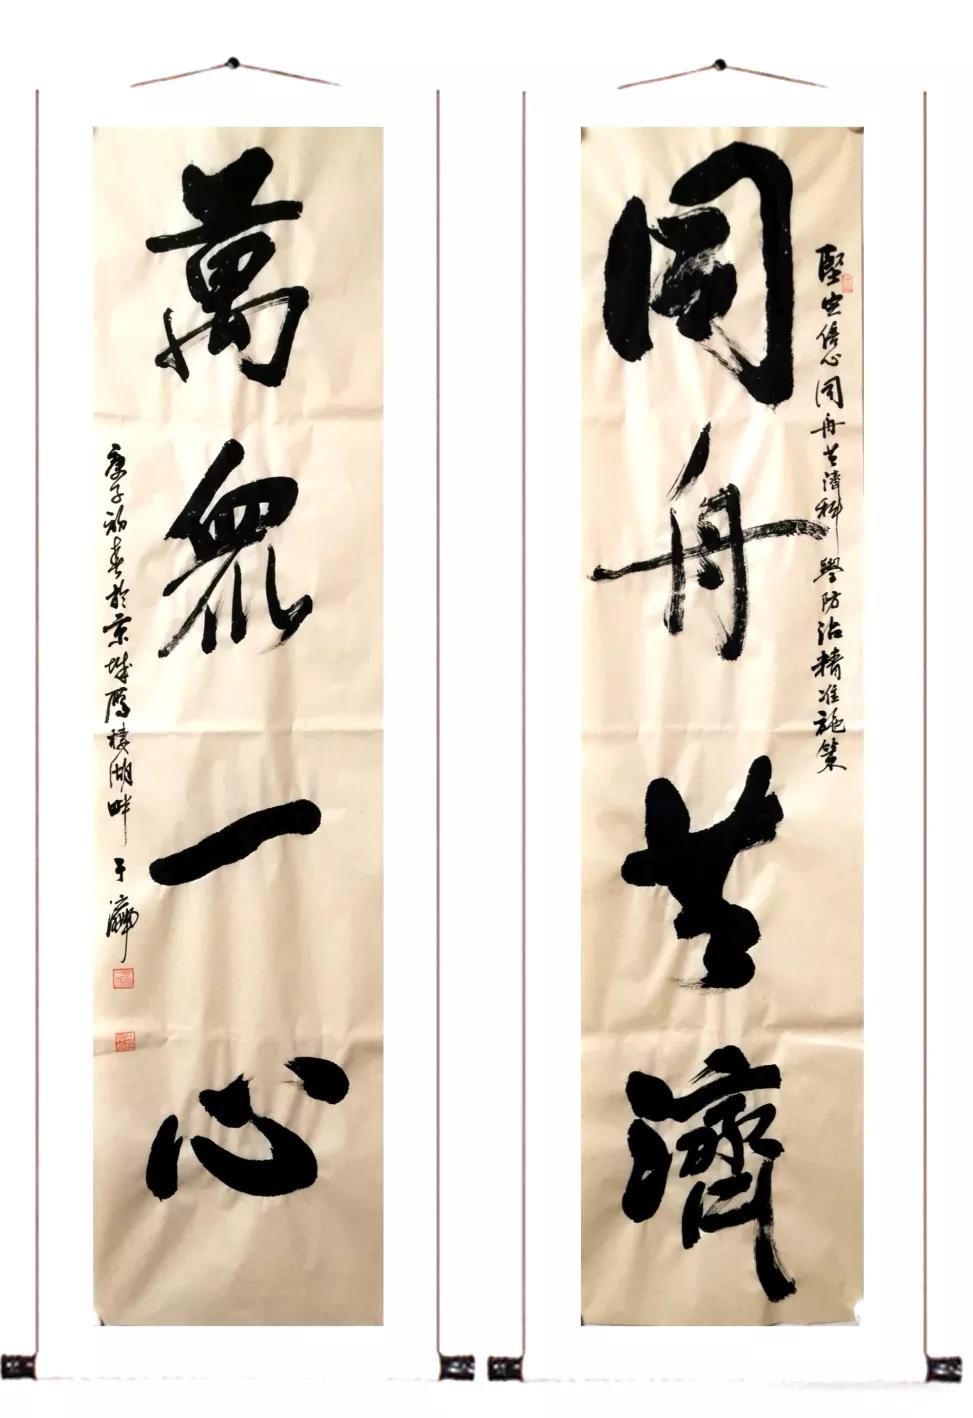 堅定信心同舟共濟科學防治精准施策
同舟共濟
萬眾一心
庚子初春於京城雁棲湖畔于